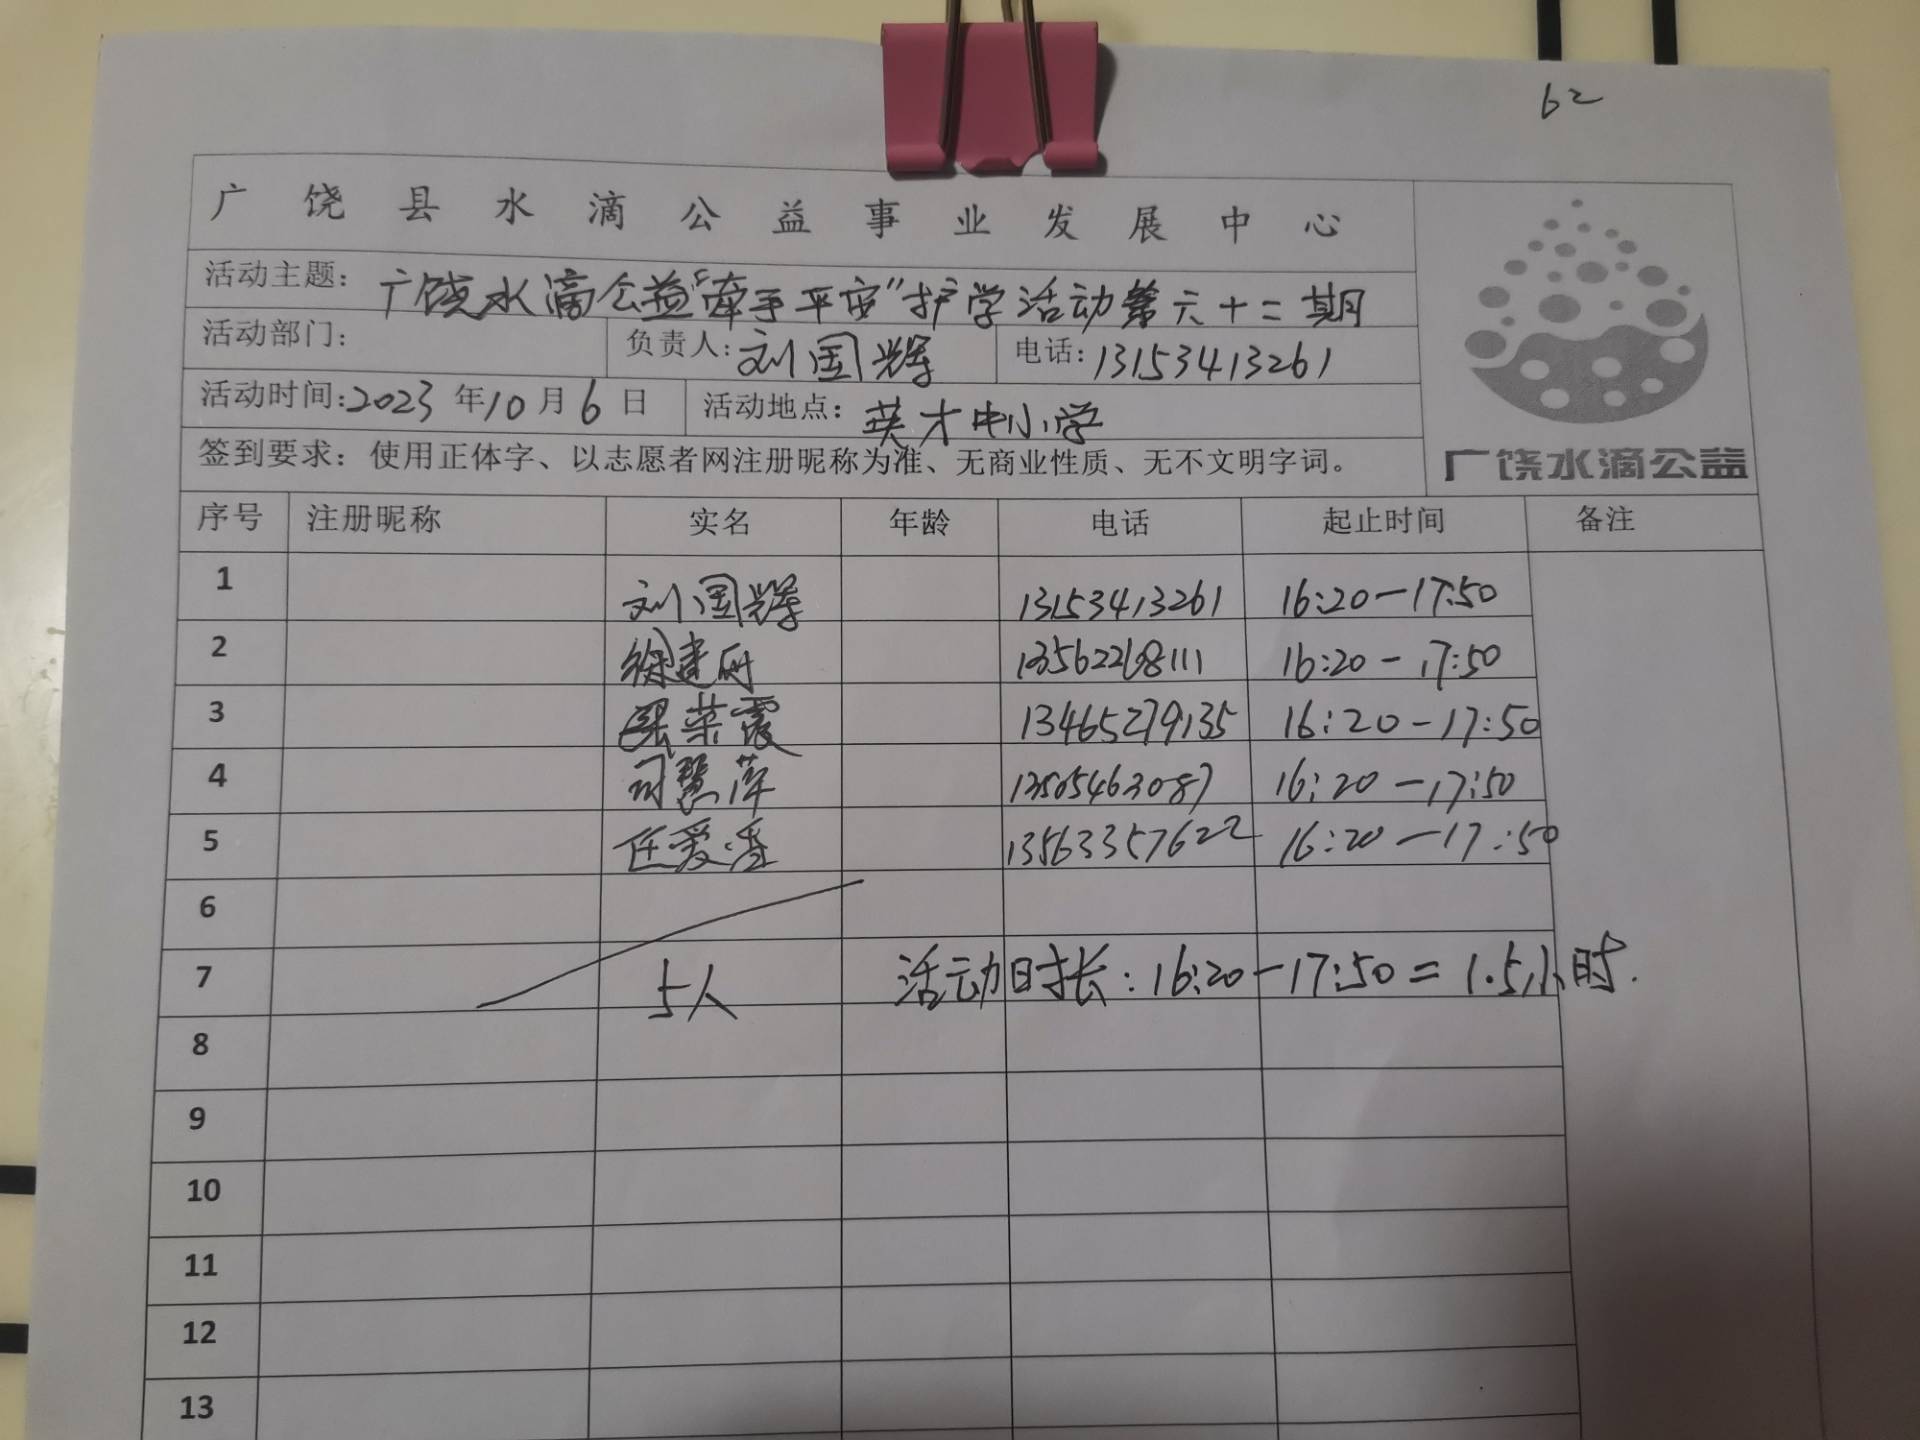 62
广饶县水滴公益事业发展中心
活动主题：广饶水滴公益“牵手平安”护学活动第六十二期
活动部门： 负责人：刘国辉 电话：13153413261
活动时间：2023年10月6日 活动地点：英才中小学
签到要求：使用正体字、以志愿者网注册昵称为准、无商业性质、无不文明字词。
广饶水滴公益
序号 注册昵称 实名 年龄 电话 起止时间 备注
1 刘国辉 13153413261 16:20-17:50
2 徐建 13562268111 16:20-17:50
3 荣霞 13465279135 16:20-17:50
4 司慧萍 13505463087 16:20-17:50
5 任爱香 13563357622 16:20-17:50
6
7 5人 活动时长：16:20-17:50=1.5小时.
8
9
10
11
12
13